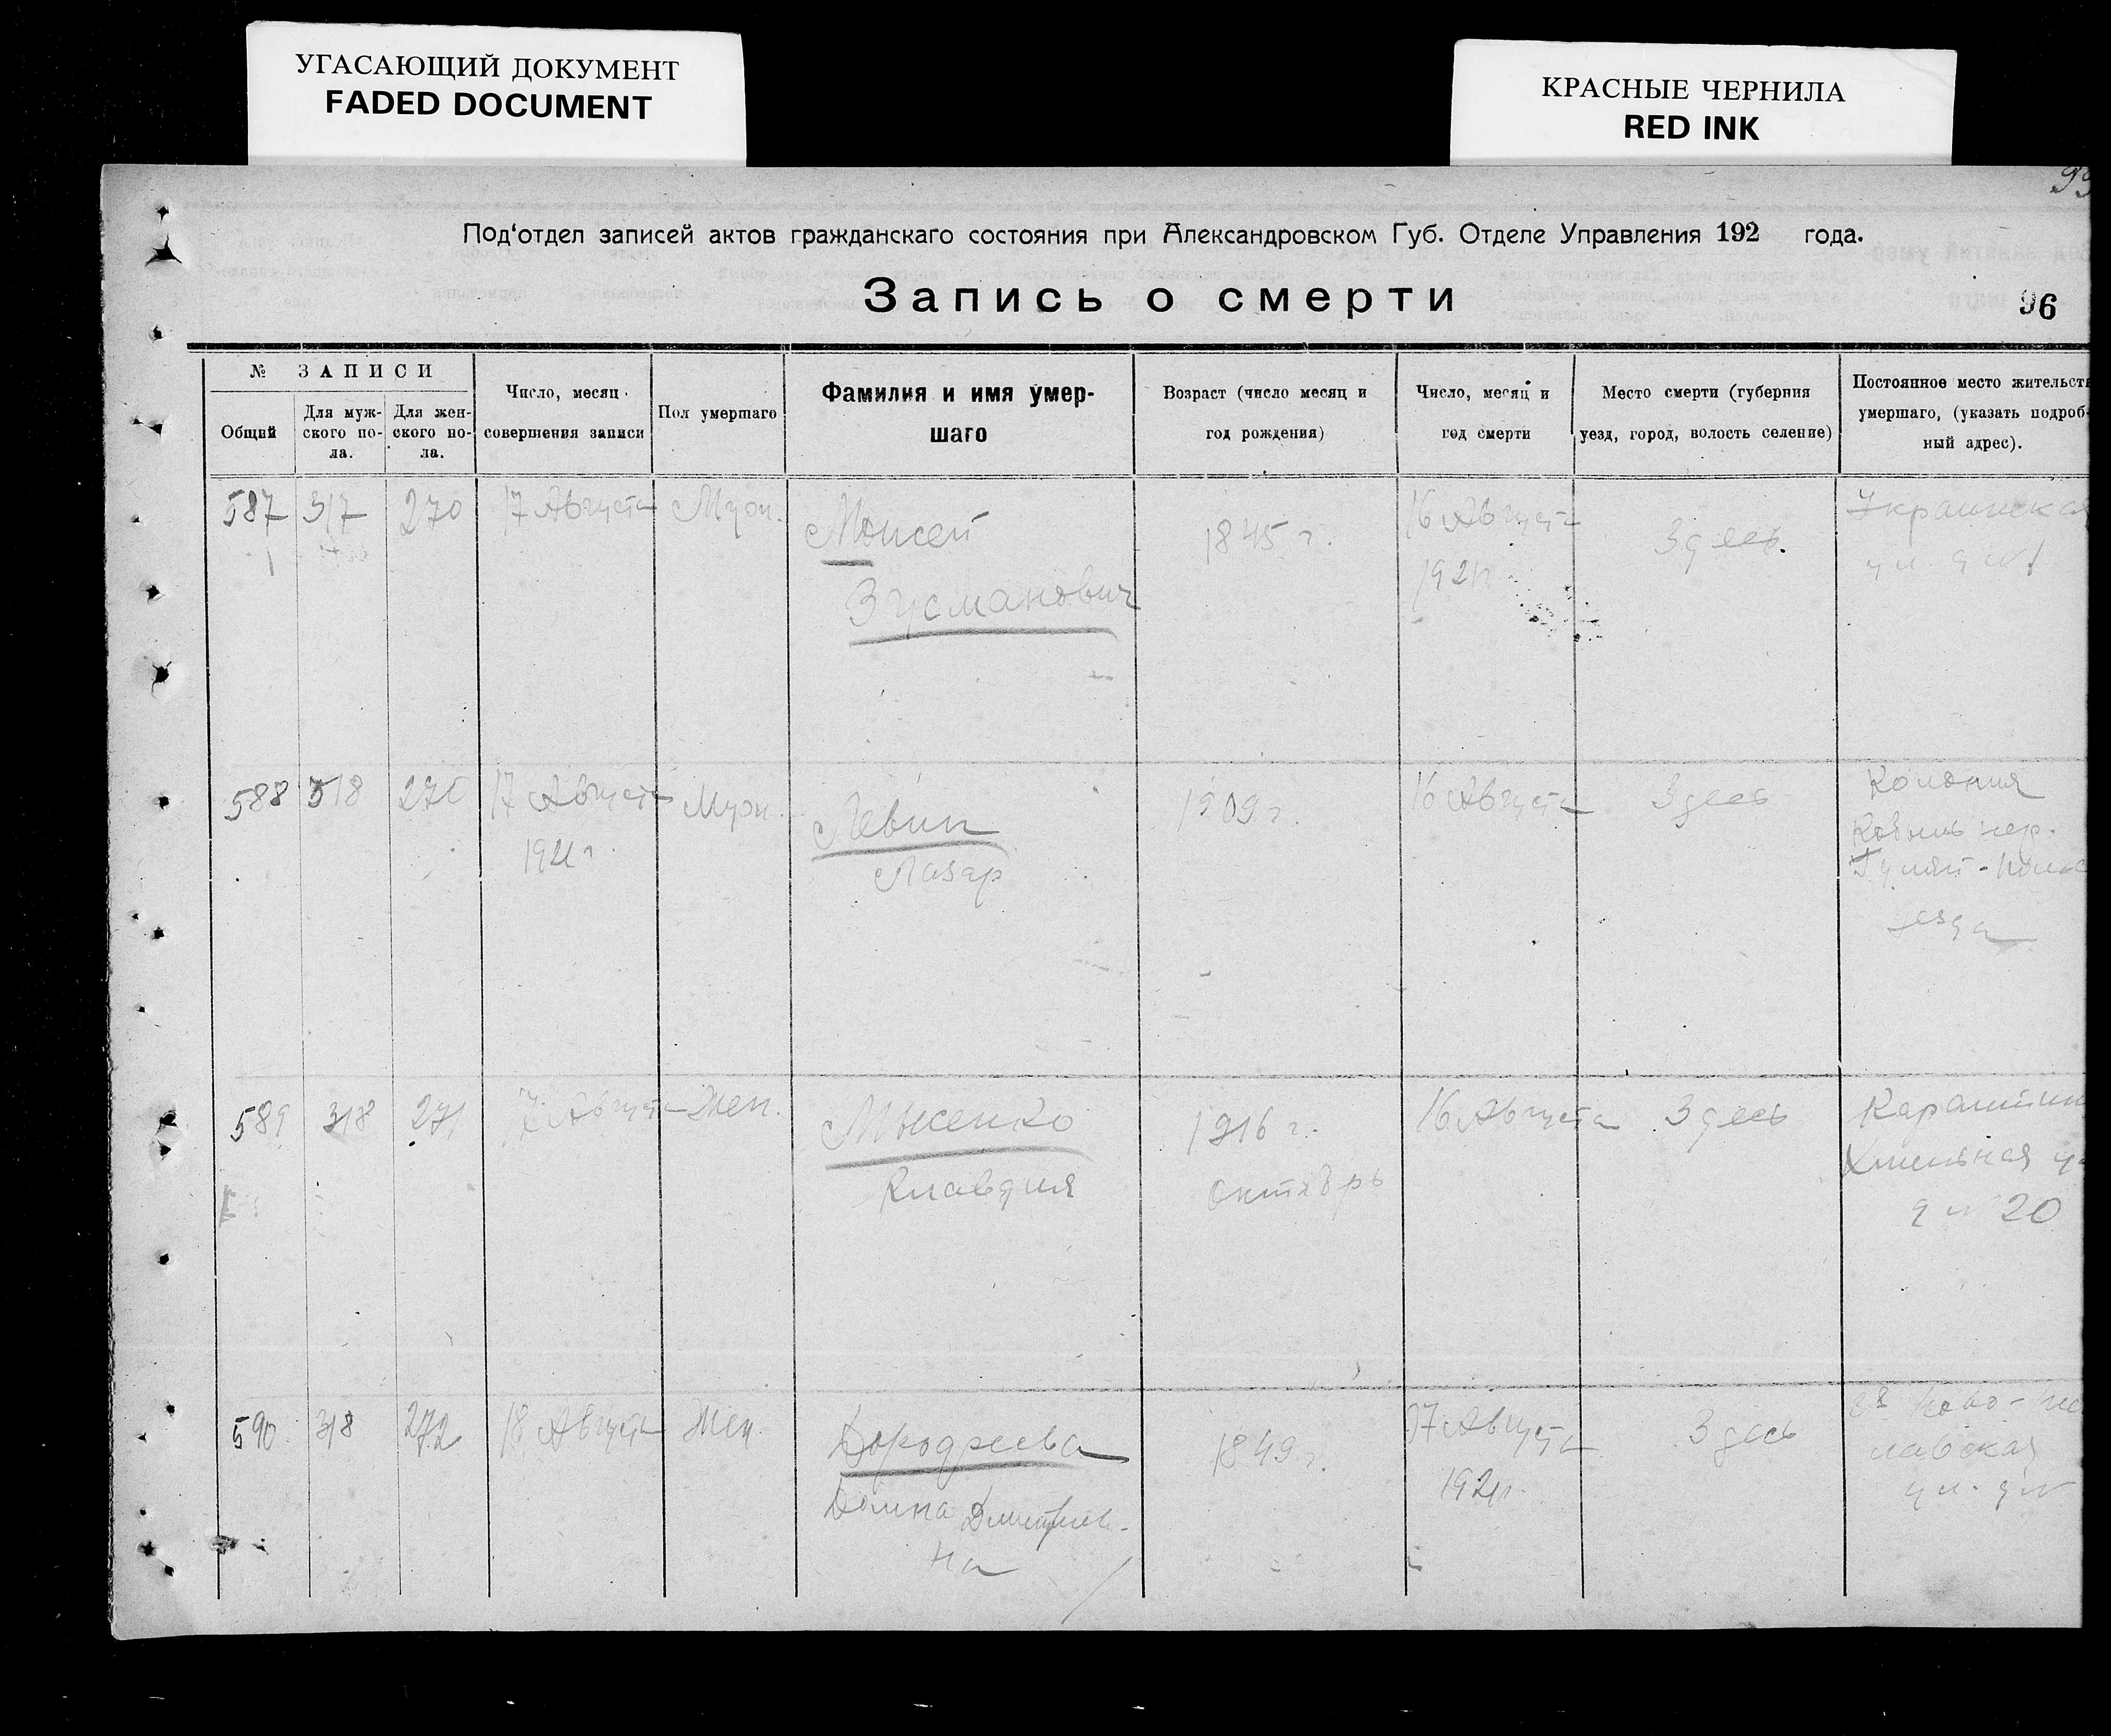 УГАСАЮЩИЙ ДОКУМЕНТ
FADED DOCUMENT
КРАСНЫЕ ЧЕРНИЛА
RED INK
Под'отдел записей актов гражданскаго состояния при Александровском Губ. Отделе Управления 192 года.
Запись о смерти
96
№ ЗАПИСИ
Общий
Для муж-
ского по-
ла.
Для жен-
ского по-
ла.
Число, месяц
совершения записи
Пол умершаго
Фамилия и имя умер-
шаго
Возраст (число месяц и
год рождения)
Число, месяц и
год смерти
Место смерти (губерния
уезд, город, волость селение)
Постоянное место жительств
умершаго, (указать подроб-
ный адрес).
587
317
270
17 Августа
Муж.
Моисей
Зусманович
1845 г.
16 Августа
1921г
Здесь.
Украинская
588
318
270
17 Августа
1921г.
Муж.
Левин
Лазар
1909 г.
16 Августа
Здесь
Колония
Гуляй-Поль
езда
589
318
271
17 Августа
Жен.
Лысенко
Клавдия
1916 г.
октябрь
16 Августа
Здесь
20
590
318
272
18 Августа
Жен.
Дородеева
Домна Дмитриев-
на
1849 г.
17 Августа
1921г.
Здесь